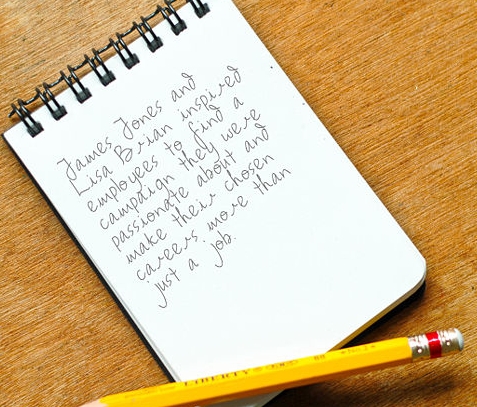 James Jones and
Lisa Brian inspired
employees to find a
campaign they were
passionate about and
make their chosen
careers more than
just a job.
LIBERTY